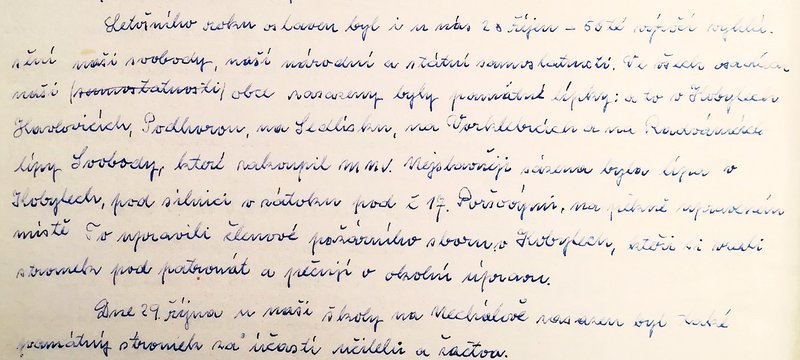 Letošního roku oslaven byl i u nás 28 říjen - 50té výročí vyhlá-
šení naší svobody, naší národní a státní samostatnosti. Ve všech osadách
naší (samostatnosti) obce zasazeny byly památné lípky: a to v Kobylech
Havlovicích, Podhoron, na Sedlisku, na Vorklebicích a na Radvánicích
lípy Svobody, které zakoupil M.N.V. Nejslavněji sázena byla lípa v
Kobylech, pod silnicí v zátoku pod č 17. Poršovými, na pěkně upraveném
místě To upravili členové požárního sboru v Kobylech, kteří si vzali
stromek pod patronát a pečují o okolní úpravu.
Dne 29. října u naší školy na Nechálově zasazen byl také
památný stromek za účasti učitelů a žactva.